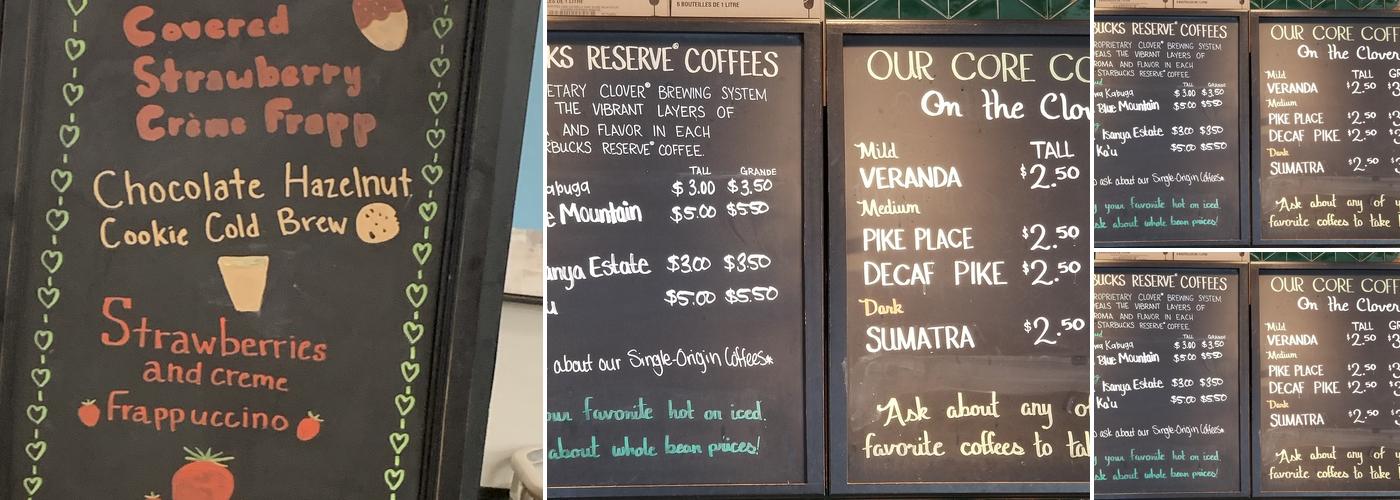 Covered
Strawberry
Crème Frapp
Chocolate Hazelnut
Cookie Cold Brew
Strawberries
and creme
Frappuccino
5 BOUTEILLES DE 1 LITRE
KS RESERVE® COFFEES
ETARY CLOVER® BREWING SYSTEM
THE VIBRANT LAYERS OF
AND FLAVOR IN EACH
RBUCKS RESERVE® COFFEE.
TALL GRANDE
abuga $3.00 $3.50
e Mountain $5.00 $5.50
anya Estate $3.00 $3.50
u $5.00 $5.50
about our Single-Origin Coffees*
our favorite hot on iced.
about whole bean prices!
OUR CORE CO
On the Clov
Mild TALL
VERANDA $2.50
Medium
PIKE PLACE $2.50
DECAF PIKE $2.50
Dark
SUMATRA $2.50
Ask about any of
favorite coffees to ta
BUCKS RESERVE® COFFEES
ROPRIETARY CLOVER® BREWING SYSTEM
EALS THE VIBRANT LAYERS OF
ROMA AND FLAVOR IN EACH
STARBUCKS RESERVE® COFFEE.
TALL GRANDE
wa Kabuga $3.00 $3.50
Blue Mountain $5.00 $5.50
Isanya Estate $3.00 $3.50
Ka'u $5.00 $5.50
o ask about our Single-Origin Coffees*
y your favorite hot on iced.
ask about whole bean prices!
OUR CORE COFF
On the Clover
Mild TALL GR
VERANDA $2.50 $3
Medium
PIKE PLACE $2.50 $3
DECAF PIKE $2.50 $3
Dark
SUMATRA $2.50 $
Ask about any of y
favorite coffees to take
BUCKS RESERVE® COFFEES
ROPRIETARY CLOVER® BREWING SYSTEM
EALS THE VIBRANT LAYERS OF
ROMA AND FLAVOR IN EACH
STARBUCKS RESERVE® COFFEE.
TALL GRANDE
wa Kabuga $3.00 $3.50
Blue Mountain $5.00 $5.50
Isanya Estate $3.00 $3.50
Ka'u $5.00 $5.50
o ask about our Single-Origin Coffees*
y your favorite hot on iced.
ask about whole bean prices!
OUR CORE COFF
On the Clover
Mild TALL GR
VERANDA $2.50 $3
Medium
PIKE PLACE $2.50 $3
DECAF PIKE $2.50 $3
Dark
SUMATRA $2.50 $
Ask about any of y
favorite coffees to take